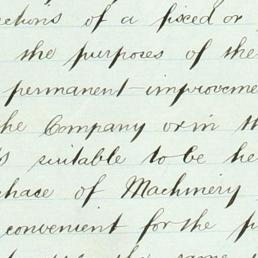 ctions of a fixed or
the purposes of the
permanent improveme
the Company or in th
s suitable to be he
chace of Machinery
convenient for the p